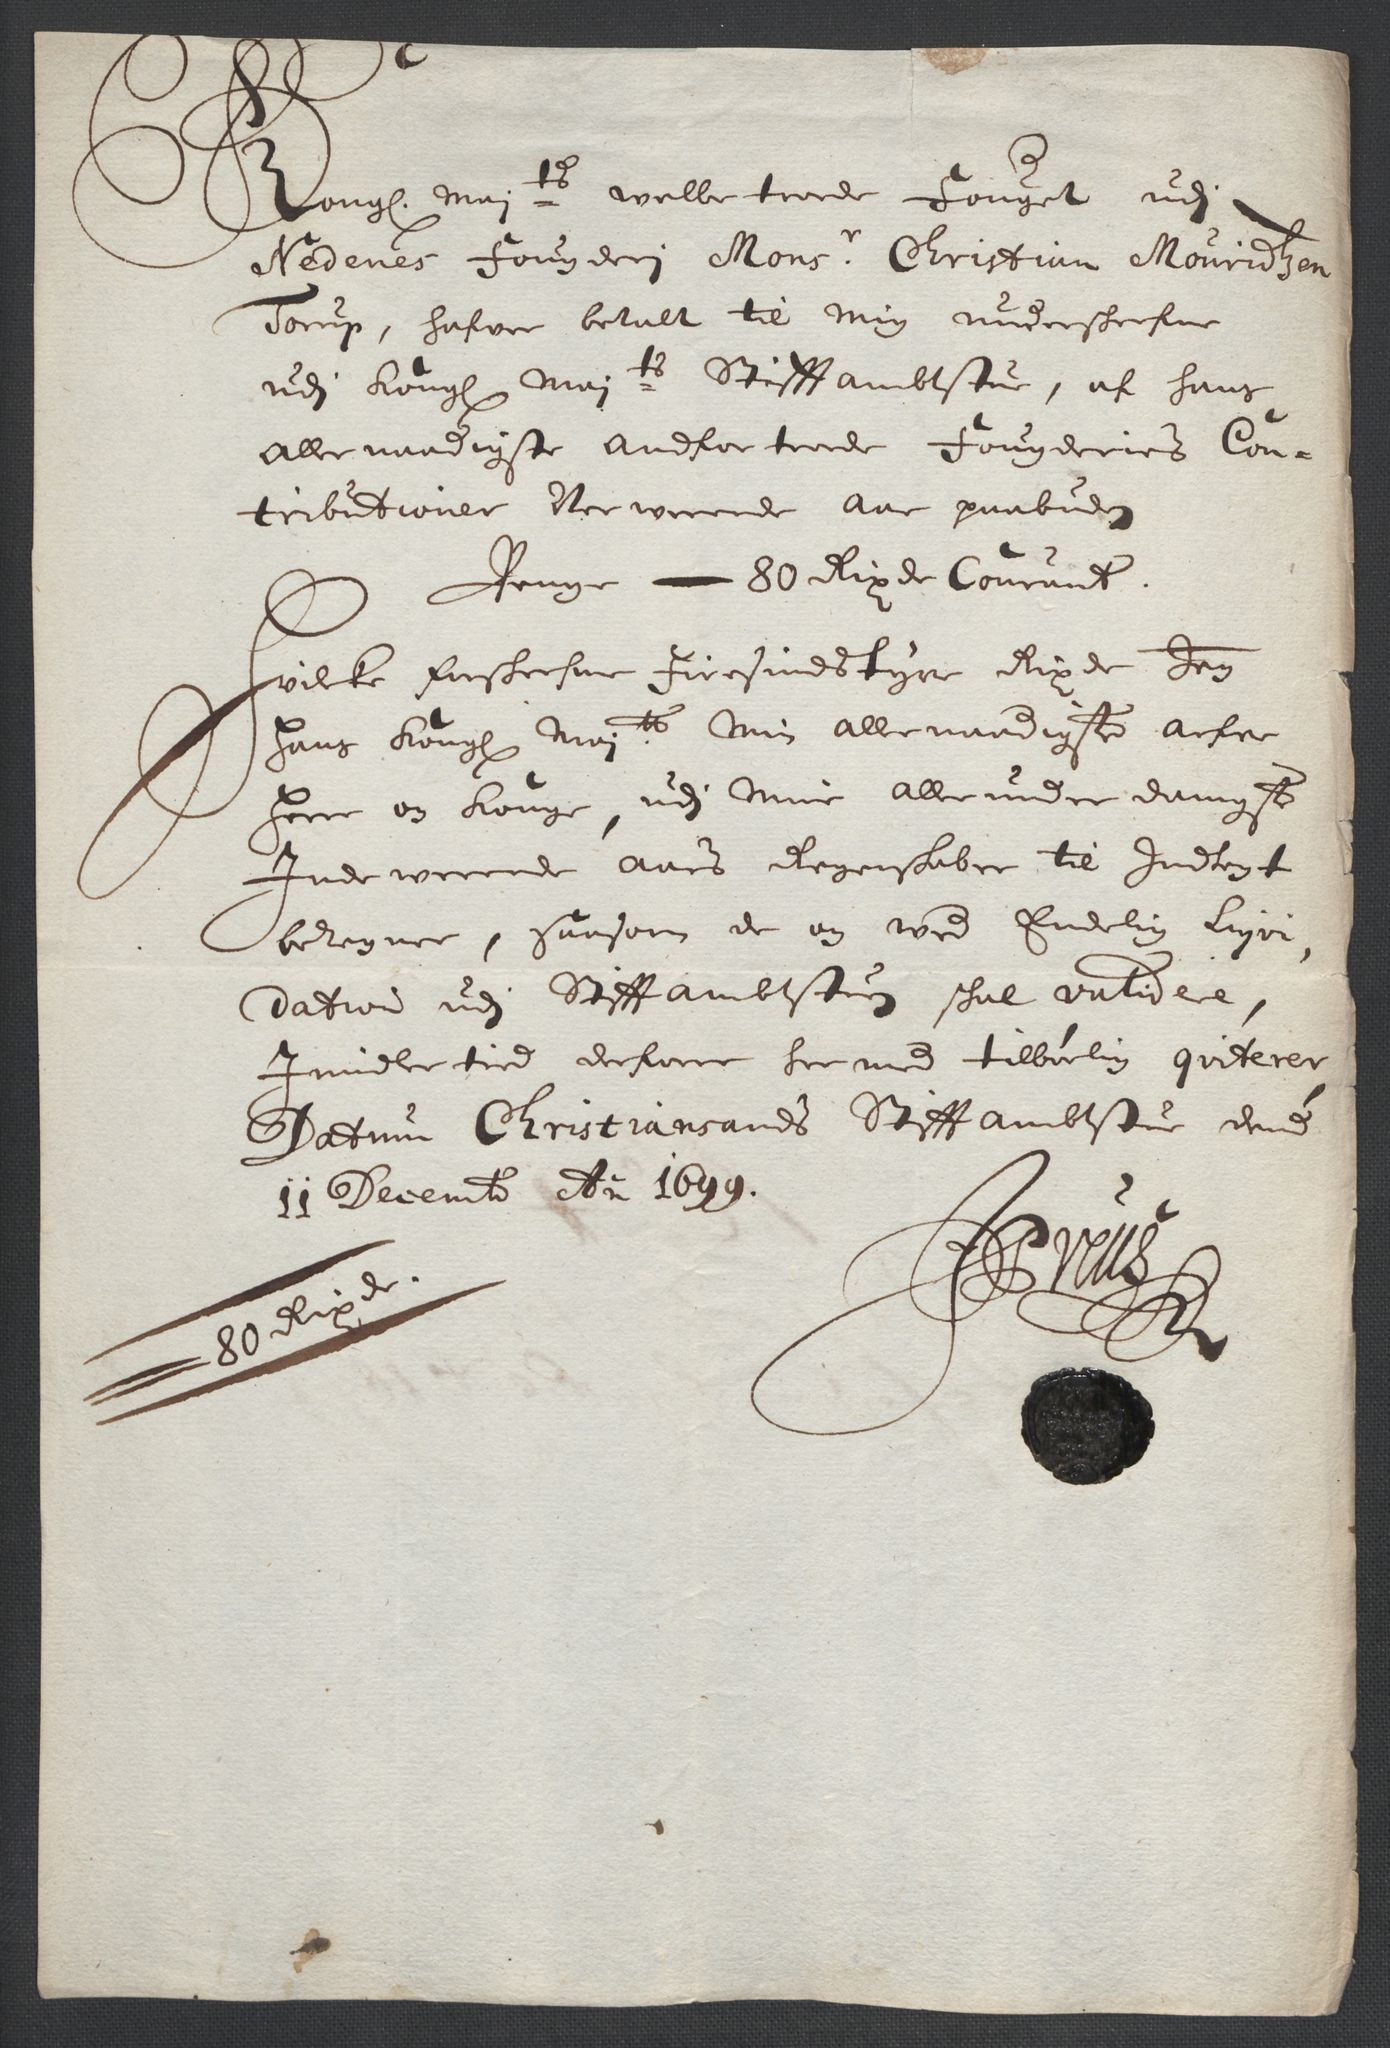 Kongl. Maj.ts welbetroede Fouget udj
Nedenes Fougderj Mons.r Christian Mouridtzen
Torup, hafver betalt til mig underschrefne
udj Kongl Maj.ts Stifftambtstue, af hans
allernaadigste andfortroede Fougderies Con-
tributioner Nerwerende aar paabuden
Penge — 80 Rixde Courant.
Hvilke forschrefne Firesindstyve Rixde Jeg
hans Kongl Maj.ts Min allernaadigste arfve
Herre og Konge, udj Mine allerunderdanigste
Indewerende aars Regenschaber til Indtegt
beregner, saasom de og wed Endelig Liqvi,
dation udj Stifftambtstuen schal validere,
Imidlertid derforre hermed tilbørlig qviterer
Datum Christiansands Stifftambtstue dend
11 Decembr An 1699.
80 Rixde.